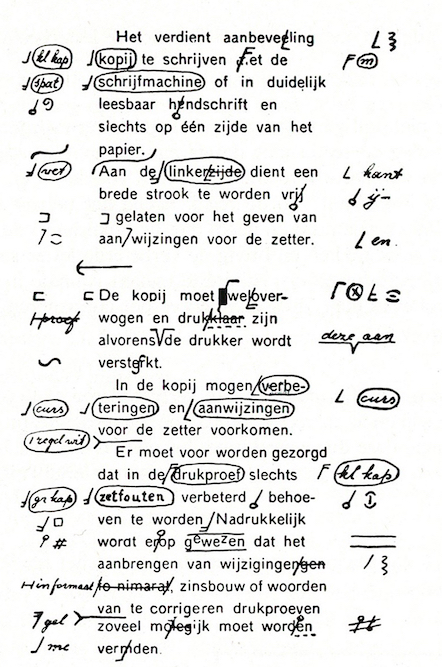 Het verdient aanbeveeling
kl kap kopij te schrijven F.et de F m
spat schrijfmachine of in duidelijk
leesbaar hendschrift en
slechts op één zijde van het
papier.
vet Aan de linkerzijde dient een kant
brede strook te worden vrij ij
gelaten voor het geven van
aan/wijzingen voor de zetter. en.
De kopij moet welover-
proef wogen en drukklaar zijn
alvorens de drukker wordt deze aan
versterkt.
In de kopij mogen verbe- curs
curs teringen en aanwijzingen
1 regel wit voor de zetter voorkomen.
Er moet voor worden gezorgd
dat in de drukproef slechts kl kap
gr kap zetfouten verbeterd behoe-
ven te worden Nadrukkelijk
# wordt erop gewezen dat het
aanbrengen van wijzigingengen
informast to nimarat, zinsbouw of woorden
van te corrigeren drukproeven
gel zoveel molegijk moet worden
me vermden.